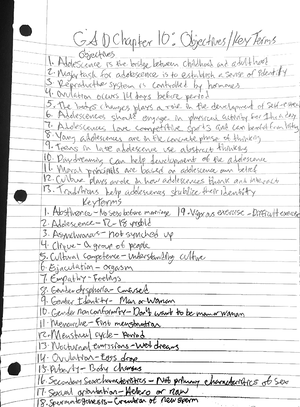 GSD Chapter 10: Objectives/Key Terms
Objectives
1. Adolescence is the bridge between childhood and adulthood
2. Major task for adolescence is to establish a sense of identity
3. Reproductive system is controlled by hormones
4. Ovulation occurs 14 days before period
5. The body's changes plays a role in the development of self-esteem
6. Adolescents should engage in physical activity 1 hr a day
7. Adolescents love competitive sports and can benefit from
8. Young adolescents are in the concrete phase of thinking
9. Teens in late adolescence use abstract thinking
10. Daydreaming can help development of the adolescence
11. Moral principles are based on adolescence own belief
12. Culture plays a role in how adolescents think and interact
13. Traditions help adolescents stabilize their identity
Key Terms
1. Abstinence - No sex before marriage 19. Vigorous exercise - Difficult exercise
2. Adolescence - 12-18 yrs old
3. Asynchronous - not synched up
4. Clique - A group of people
5. Cultural Competence - Understanding culture
6. Ejaculation - orgasm
7. Empathy - Feelings
8. Gender dysphoria - Confused
9. Gender Identity - Man or Woman
10. Gender nonconformity - Don't want to be man or woman
11. Menarche - First menstruation
12. Menstrual cycle - Period
13. Nocturnal emissions - Wet dreams
14. Ovulation - Eggs drop
15. Puberty - Body changes
16. Secondary Sex characteristics - Not primary characteristics of sex
17. Sexual orientation - Hetero or
18. Spermatogenesis - Creation of new sperm